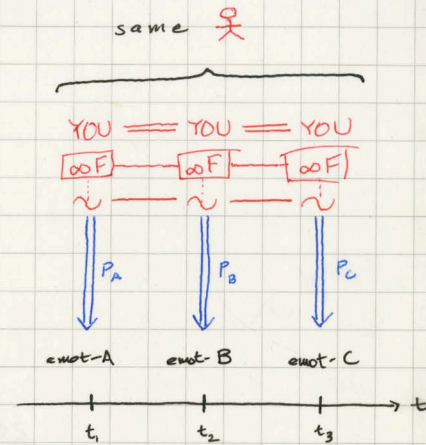 same
YOU = YOU = YOU
∞F — ∞F — ∞F
~ — ~ — ~
P_A P_B P_C
emot-A emot-B emot-C
t
t₁ t₂ t₃